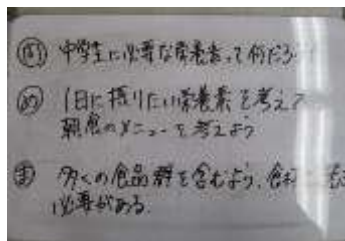 ㋺ 中学生に必要な栄養素って何だろう
㋱ 1日に摂りたい栄養素を考えて
朝食のメニューを考えよう
㋮ 多くの食品群を含むよう、食材
必要がある。